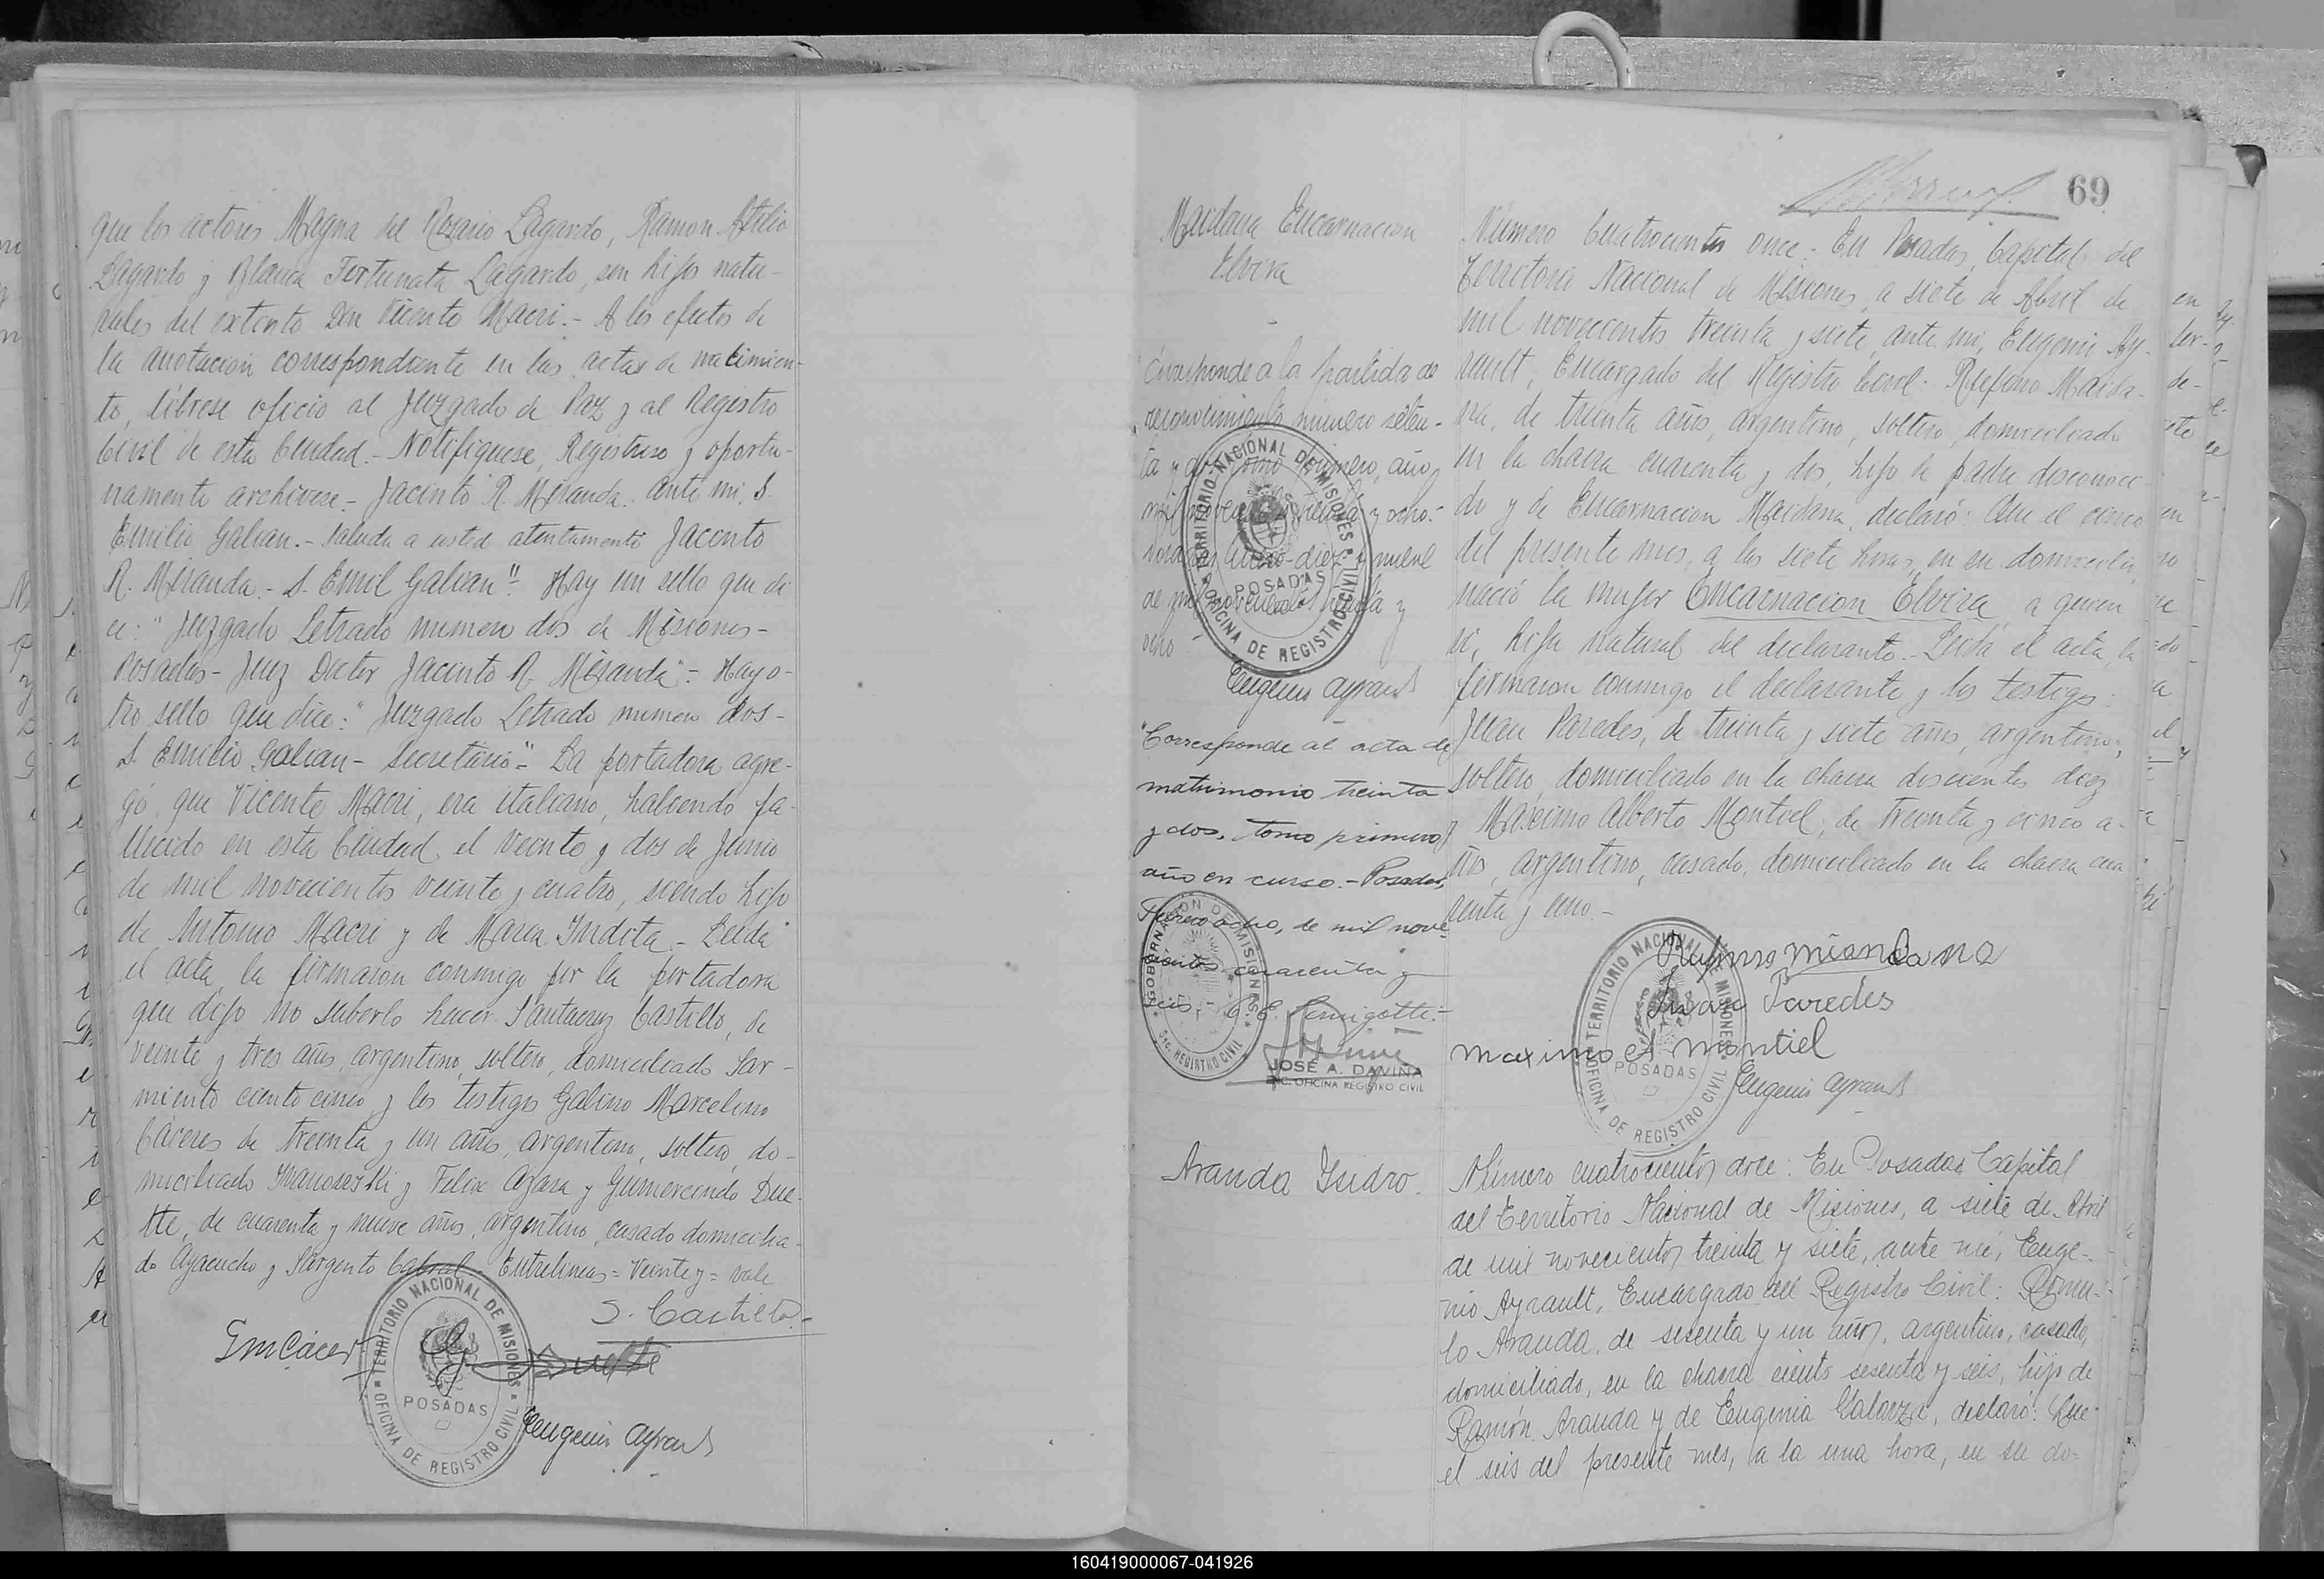 que los actores Magna del Rosario Lagardo, Ramon Atilio
Lagardo y Blanca Fortunata Lagardo, son hijos natu-
rales del extinto Don Vicente Macri.- A los efectos de
la anotacion correspondiente en las actas de nacimien-
to, líbrese oficio al Juzgado de Paz y al Registro
Civil de esta Ciudad.- Notifiquese, Registrese y oportu-
namente archivese.- Jacinto R. Miranda. Ante mi, S.
Emilio Galian.- Saluda a usted atentamente Jacinto
R. Miranda.- S. Emil Galian". Hay un sello que di-
ce: "Juzgado Letrado numero dos de Misiones-
Posadas- Juez Doctor Jacinto R. Miranda"- Hay o-
tro sello que dice: "Juzgado Letrado numero dos-
S. Emilio Galian- Secretario"- La portadora agre-
gó, que Vicente Macri, era italiano, habiendo fa-
llecido en esta Ciudad, el veinte y dos de Junio
de mil novecientos veinte y cuatro, siendo hijo
de Antonio Macri y de Maria Indita.- Leida
el acta, la firmaron conmigo por la portadora
que dijo no saberlo hacer Santacruz Castillo, de
veinte y tres años, argentino, soltero, domiciliado Sar-
miento ciento cinco y los testigos Gabino Marcelino
Cáceres de treinta y un años, argentino, soltero, do-
miciliado Ivanowski y Felix Azara y Gumercindo Due-
tte, de cuarenta y nueve años, argentino, casado domicilia-
do Ayacucho y Sargento Cabral.- Entrelineas= Veinte y= vale
S. Castillo.-
GmCácer
G Duette
TERRITORIO NACIONAL DE MISIONES
POSADAS
OFICINA DE REGISTRO CIVIL
Eugenio Ayrault
69
Maidana Encarnacion
Elvira
Corresponde a la partida de
reconocimiento numero seten-
ta y dos, tomo primero, año
mil novecientos treinta y ocho.-
Posadas, diez y nueve
de mil novecientos treinta y
ocho.
TERRITORIO NACIONAL DE MISIONES
POSADAS
OFICINA DE REGISTRO CIVIL
Eugenio Ayrault
"Corresponde al acta de
matrimonio treinta
y dos, tomo primero,
año en curso.- Posadas,
ocho, de mil nove-
cientos cuarenta y
seis.
GOBERNACION DE MISIONES
REGISTRO CIVIL
JOSÉ A. DAVIÑA
ENC. OFICINA REGISTRO CIVIL
Número Cuatrocientos once: En Posadas, Capital del
Territorio Nacional de Misiones, a siete de Abril de
mil novecientos treinta y siete, ante mi, Eugenio Ay-
rault, Encargado del Registro Civil: Rufino Maida-
na, de treinta años, argentino, soltero, domiciliado
en la chacra cuarenta y dos, hijo de padre desconoci-
do y de Encarnacion Maidana, declaró: Que el cinco
del presente mes, a las siete horas, en su domicilio,
nació la mujer Encarnacion Elvira, a quien
vi, hija natural del declarante.- Leida el acta, la
firmaron conmigo el declarante y los testigos:
Juan Paredes, de treinta y siete años, argentino,
soltero, domiciliado en la chacra doscientos diez
y Maximo Alberto Montiel, de treinta y cinco a-
ños, argentino, casado, domiciliado en la chacra cua-
renta y uno.-
Rufino miandana
Juan Paredes
maximo A montiel
TERRITORIO NACIONAL DE MISIONES
POSADAS
OFICINA DE REGISTRO CIVIL
Eugenio Ayrault
Aranda Isidro.
Número cuatrocientos doce: En Posadas Capital
del Territorio Nacional de Misiones, a siete de Abril
de mil novecientos treinta y siete, ante mí, Euge-
nio Ayrault, Encargado del Registro Civil: Romu-
lo Aranda, de sesenta y un años, argentino, casado,
domiciliado, en la chacra ciento sesenta y seis, hijo de
Ramón Aranda y de Eugenia Galarza, declaró: Que
el seis del presente mes, a la una hora, en su do-
160419000067-041926